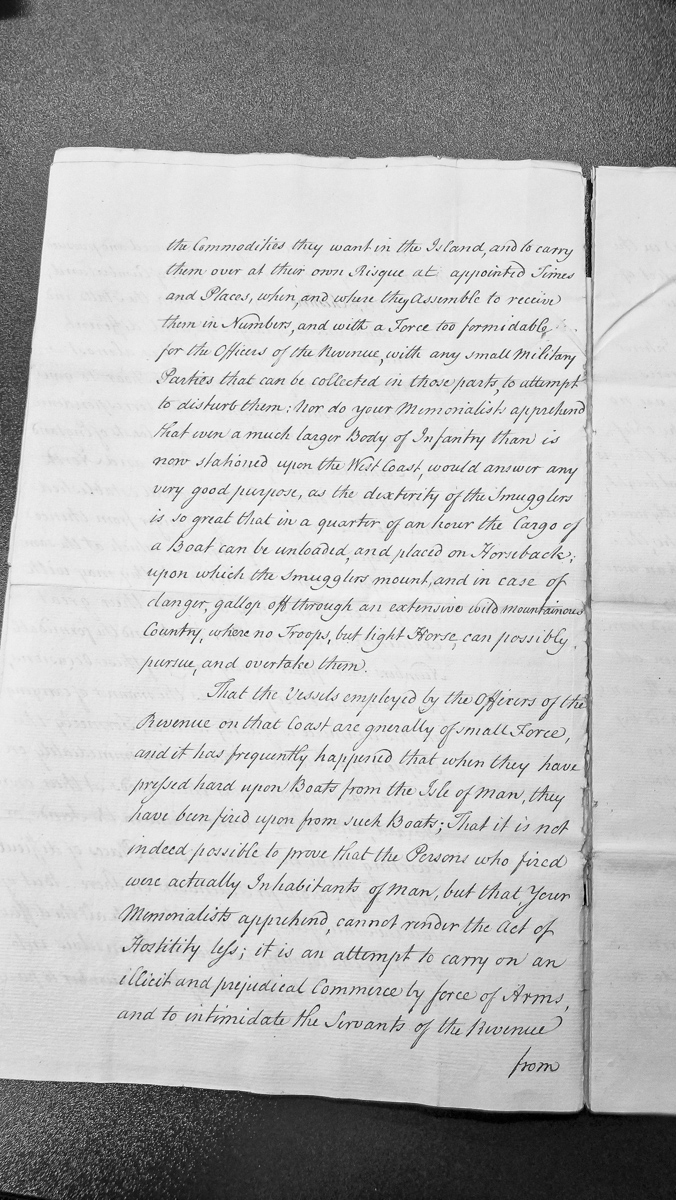 the Commodities they want in the Island, and to carry
them over at their own Risque at appointed Times
and Places, when, and where they Assemble to receive
them in Numbers, and with a Force too formidable
for the Officers of the Revenue, with any small Military
Parties that can be collected in those parts, to attempt
to disturb them: Nor do your Memorialists apprehend
that even a much larger Body of Infantry than is
now stationed upon the West Coast, would answer any
very good purpose, as the dexterity of the Smugglers
is so great that in a quarter of an hour the Cargo of
a Boat can be unloaded, and placed on Horseback;
upon which the Smugglers mount, and in case of
danger, gallop off through an extensive wild mountainous
Country, where no Troops, but light Horse, can possibly
pursue, and overtake them.
That the Vessels employed by the Officers of the
Revenue on that Coast are gnerally of small Force,
and it has frequently happened that when they have
pressed hard upon Boats from the Isle of Man, they
have been fired upon from such Boats; That it is not
indeed possible to prove that the Persons who fired
were actually Inhabitants of Man, but that, Your
Memorialists apprehend, cannot render the Act of
Hostitity less; it is an attempt to carry on an
illicit and prejudical Commerce by force of Arms,
and to intimidate the Servants of the Revenue
from